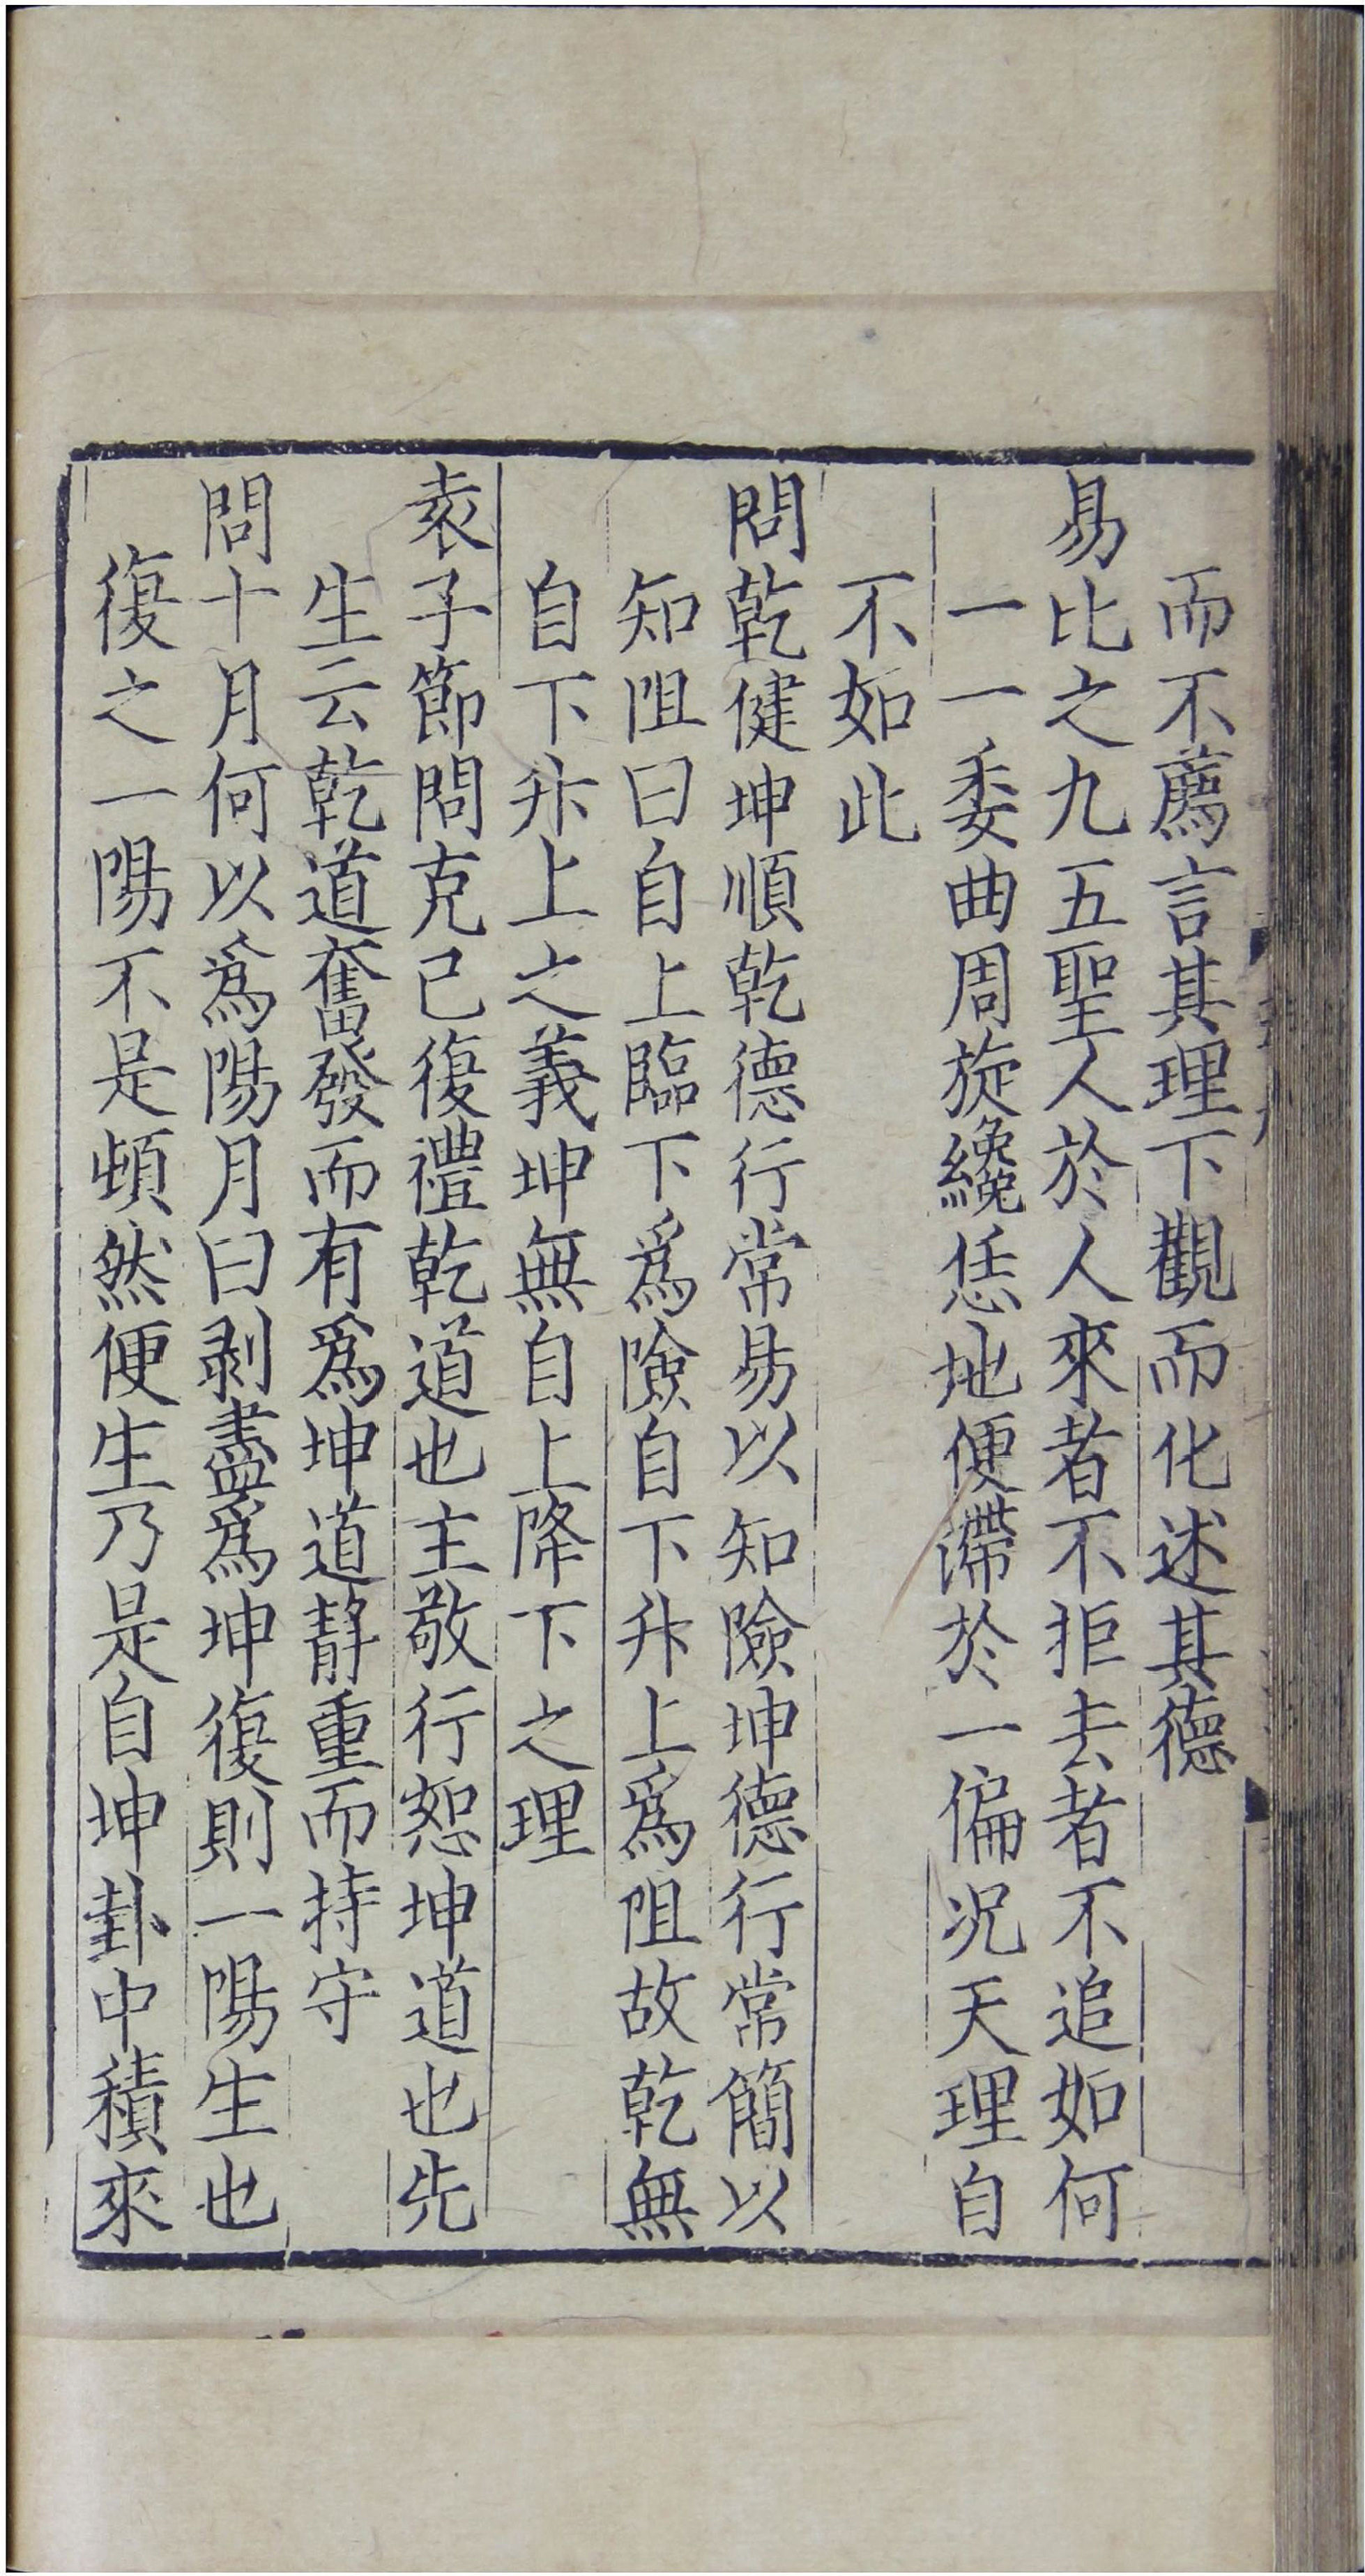 而不薦言其理下觀而化述其德
易比之九五聖人於人來者不拒去者不追如何
一一委曲周旋纔恁地便滯於一偏况天理自
不如此
問乾健坤順乾德行常易以知險坤德行常簡以
知阻曰自上臨下爲險自下升上爲阻故乾無
自下升上之義坤無自上降下之理
袁子節問克已復禮乾道也主敬行恕坤道也先
生云乾道奮發而有爲坤道静重而持守
問十月何以爲陽月曰剥盡爲坤復則一陽生也
復之一陽不是頓然便生乃是自坤卦中積來